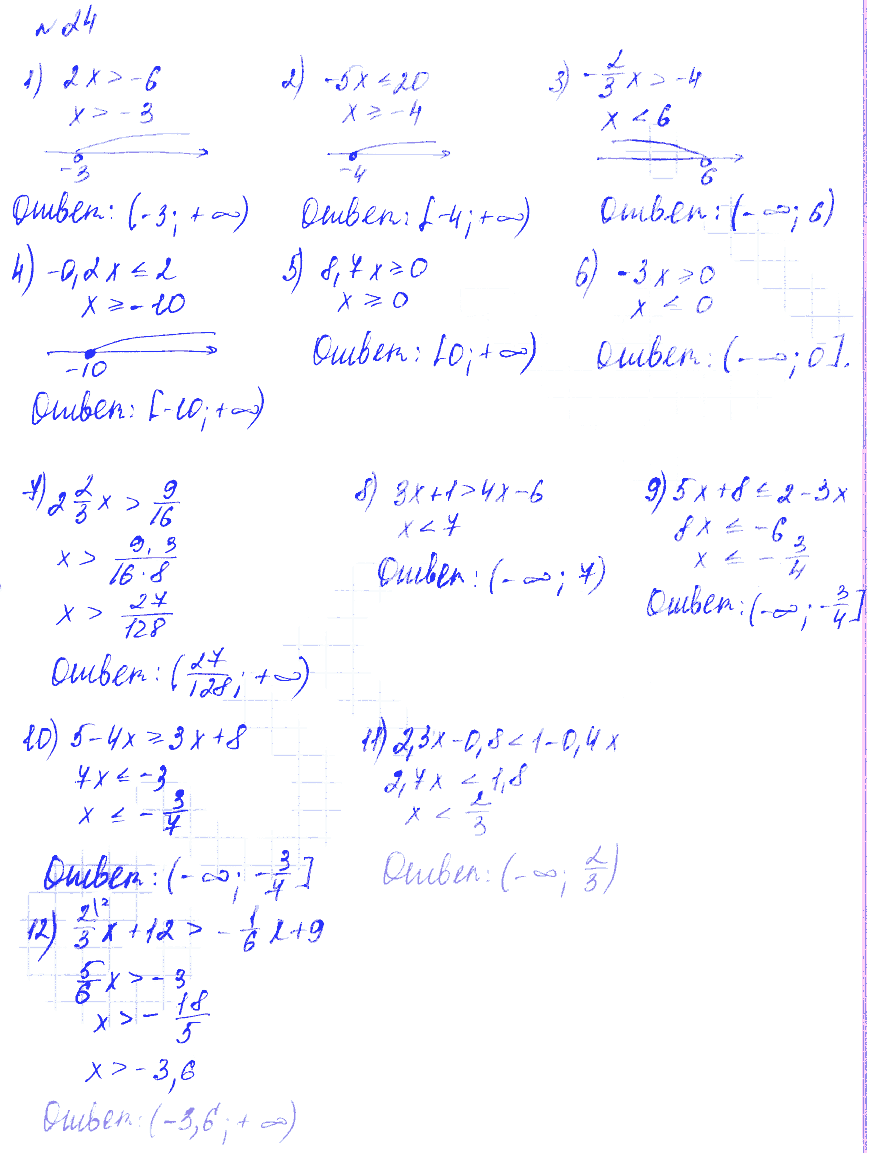 № 24
1) 2x > -6
x > -3
-3
Ответ: (-3; +∞)
2) -5x ≤ 20
x ≥ -4
-4
Ответ: [-4; +∞)
3) -2/3 x > -4
x < 6
6
Ответ: (-∞; 6)
4) -0,2x ≤ 2
x ≥ -10
-10
Ответ: [-10; +∞)
5) 8,7x ≥ 0
x ≥ 0
Ответ: [0; +∞)
6) -3x ≥ 0
x ≤ 0
Ответ: (-∞; 0].
7) 2 2/3 x > 9/16
x > 9·3/16·8
x > 27/128
Ответ: (27/128; +∞)
8) 3x+1 > 4x-6
x < 7
Ответ: (-∞; 7)
9) 5x+8 ≤ 2-3x
8x ≤ -6
x ≤ -3/4
Ответ: (-∞; -3/4]
10) 5-4x ≥ 3x+8
7x ≤ -3
x ≤ -3/7
Ответ: (-∞; -3/7]
11) 2,3x-0,8 < 1-0,4x
2,7x < 1,8
x < 2/3
Ответ: (-∞; 2/3)
12) 2\2/3 x+12 > -1/6 x+9
5/6 x > -3
x > -18/5
x > -3,6
Ответ: (-3,6; +∞)